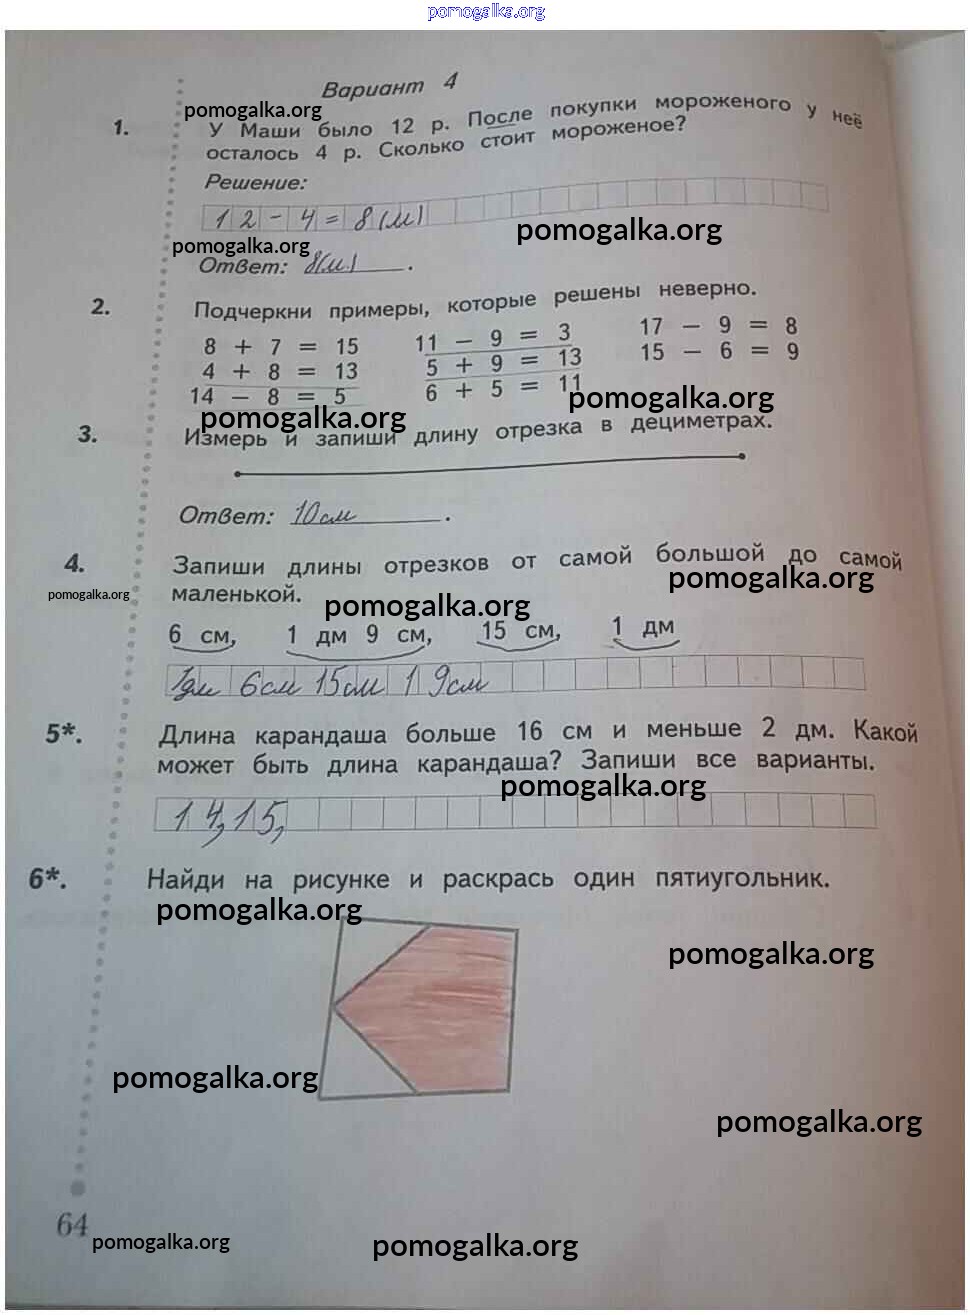 pomogalka.org
Вариант 4
pomogalka.org
1. У Маши было 12 р. После покупки мороженого у неё
осталось 4 р. Сколько стоит мороженое?
Решение:
12-4=8(м)
pomogalka.org
pomogalka.org
Ответ: 8(м).
2. Подчеркни примеры, которые решены неверно.
8 + 7 = 15 11 − 9 = 3 17 − 9 = 8
4 + 8 = 13 5 + 9 = 13 15 − 6 = 9
14 − 8 = 5 6 + 5 = 11
pomogalka.org
pomogalka.org
3. Измерь и запиши длину отрезка в дециметрах.
Ответ: 10см.
4. Запиши длины отрезков от самой большой до самой
маленькой.
pomogalka.org
pomogalka.org
pomogalka.org
6 см, 1 дм 9 см, 15 см, 1 дм
1дм 6см 15см 1 9см
5*. Длина карандаша больше 16 см и меньше 2 дм. Какой
может быть длина карандаша? Запиши все варианты.
pomogalka.org
14,15,
6*. Найди на рисунке и раскрась один пятиугольник.
pomogalka.org
pomogalka.org
pomogalka.org
pomogalka.org
64
pomogalka.org
pomogalka.org